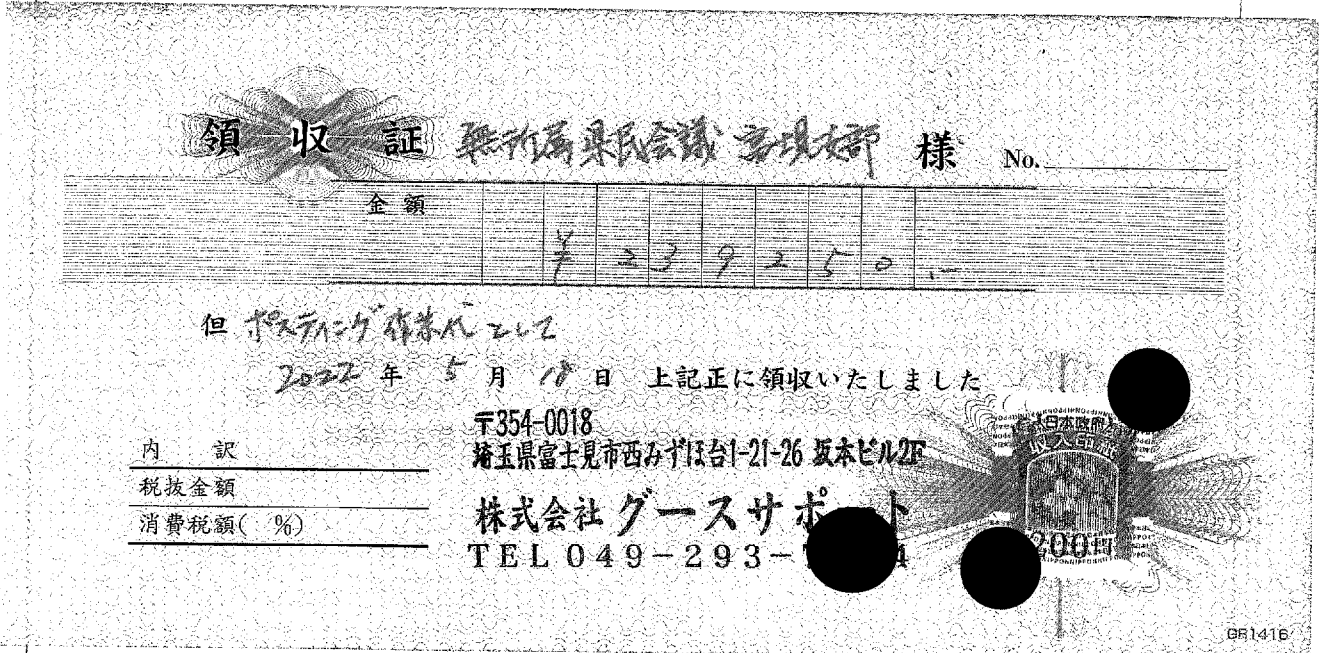 領収証 無所属県民会議 富士見支部 様 No.
金額
¥239250.-
但 ポスティング作業代として
2022年 5月 18日 上記正に領収いたしました
〒354-0018
埼玉県富士見市西みずほ台1-21-26 坂本ビル2F
内訳
税抜金額
株式会社グースサポート
消費税額( %)
TEL 049-293-
4
日本政府
収入印紙
200円
GR1416